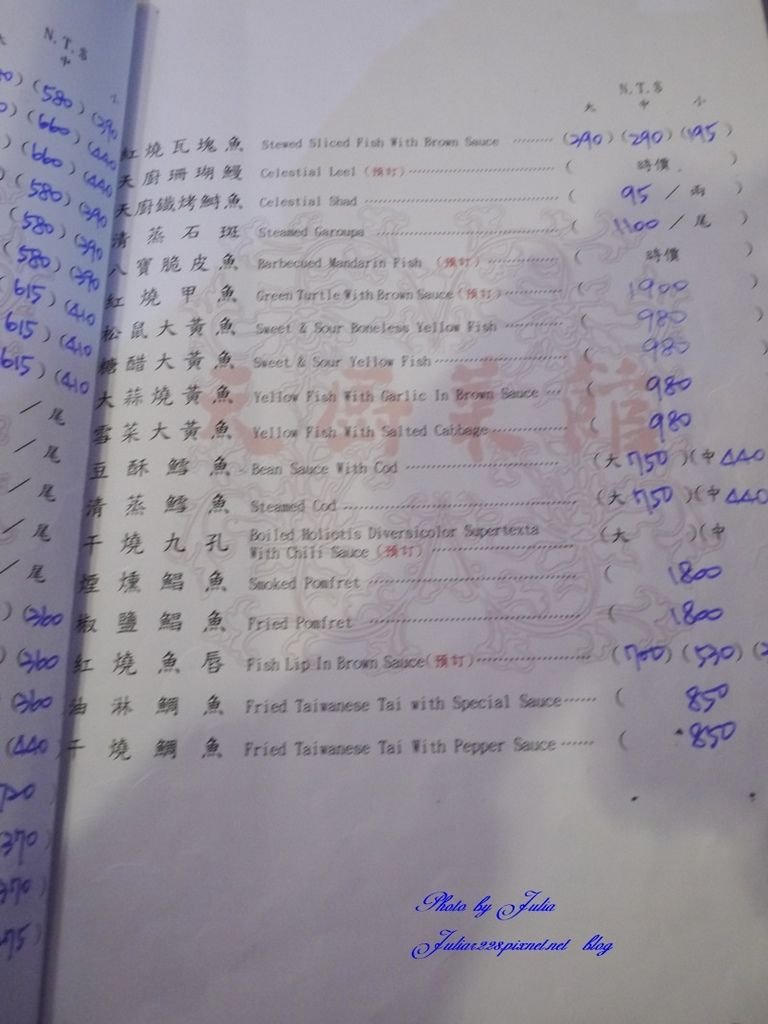 N.T.$
中
(580) (390
(660) (440
(660) (440
(580) (390
(580) (390
(580) (390
615) (410
615) (410
615) (410
/ 尾
/ 尾
/ 尾
/ 尾
/ 尾
) (360
) (360
(360
(440
720
370)
370)
475)
N.T.$
大 中 小
紅燒瓦塊魚 Stewed Sliced Fish With Brown Sauce ········ (390) (290) (195)
天廚珊瑚鰻 Celestial Leel (預訂) ········ ( 時價 )
天廚鐵烤鰣魚 Celestial Shad ········ ( 95 / 兩 )
清蒸石斑 Steamed Garoupa ········ ( 1100 / 尾 )
八寶脆皮魚 Barbecued Mandarin Fish (預訂) ········ ( 時價 )
紅燒甲魚 Green Turtle With Brown Sauce (預訂) ········ ( 1900 )
松鼠大黃魚 Sweet & Sour Boneless Yellow Fish ········ ( 980 )
糖醋大黃魚 Sweet & Sour Yellow Fish ········ ( 980 )
大蒜燒黃魚 Yellow Fish With Garlic In Brown Sauce ··· ( 980
雪菜大黃魚 Yellow Fish With Salted Cabbage ········ ( 980
豆酥鱈魚 Bean Sauce With Cod ········ (大 750 )(中 440
清蒸鱈魚 Steamed Cod ········ (大 750 )(中 440
干燒九孔 Boiled Holiotis Diversicolor Supertexta
With Chili Sauce (預訂) ········ (大 )(中
煙燻鯧魚 Smoked Pomfret ········ ( 1800
椒鹽鯧魚 Fried Pomfret ········ ( 1800
紅燒魚唇 Fish Lip In Brown Sauce (預訂) ········ (700) (530) (
油淋鯛魚 Fried Taiwanese Tai with Special Sauce ······ ( 850
干燒鯛魚 Fried Taiwanese Tai With Pepper Sauce ······ ( 850
天廚菜館
Photo by Julia
Julia1228.pixnet.net blog